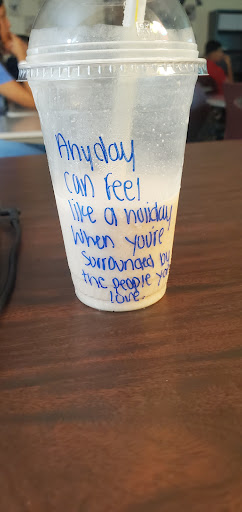 Anyday
can feel
like a holiday
when you're
surrounded by
the people you
love.